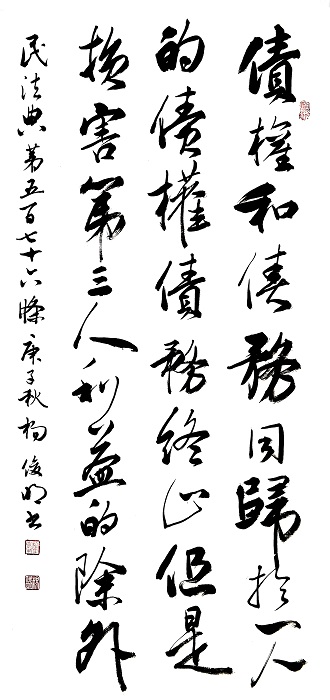 債權和債務同歸於一人
的債權債務終止但是
損害第三人利益的除外
民法典第五百七十六條庚子秋楊俊明書